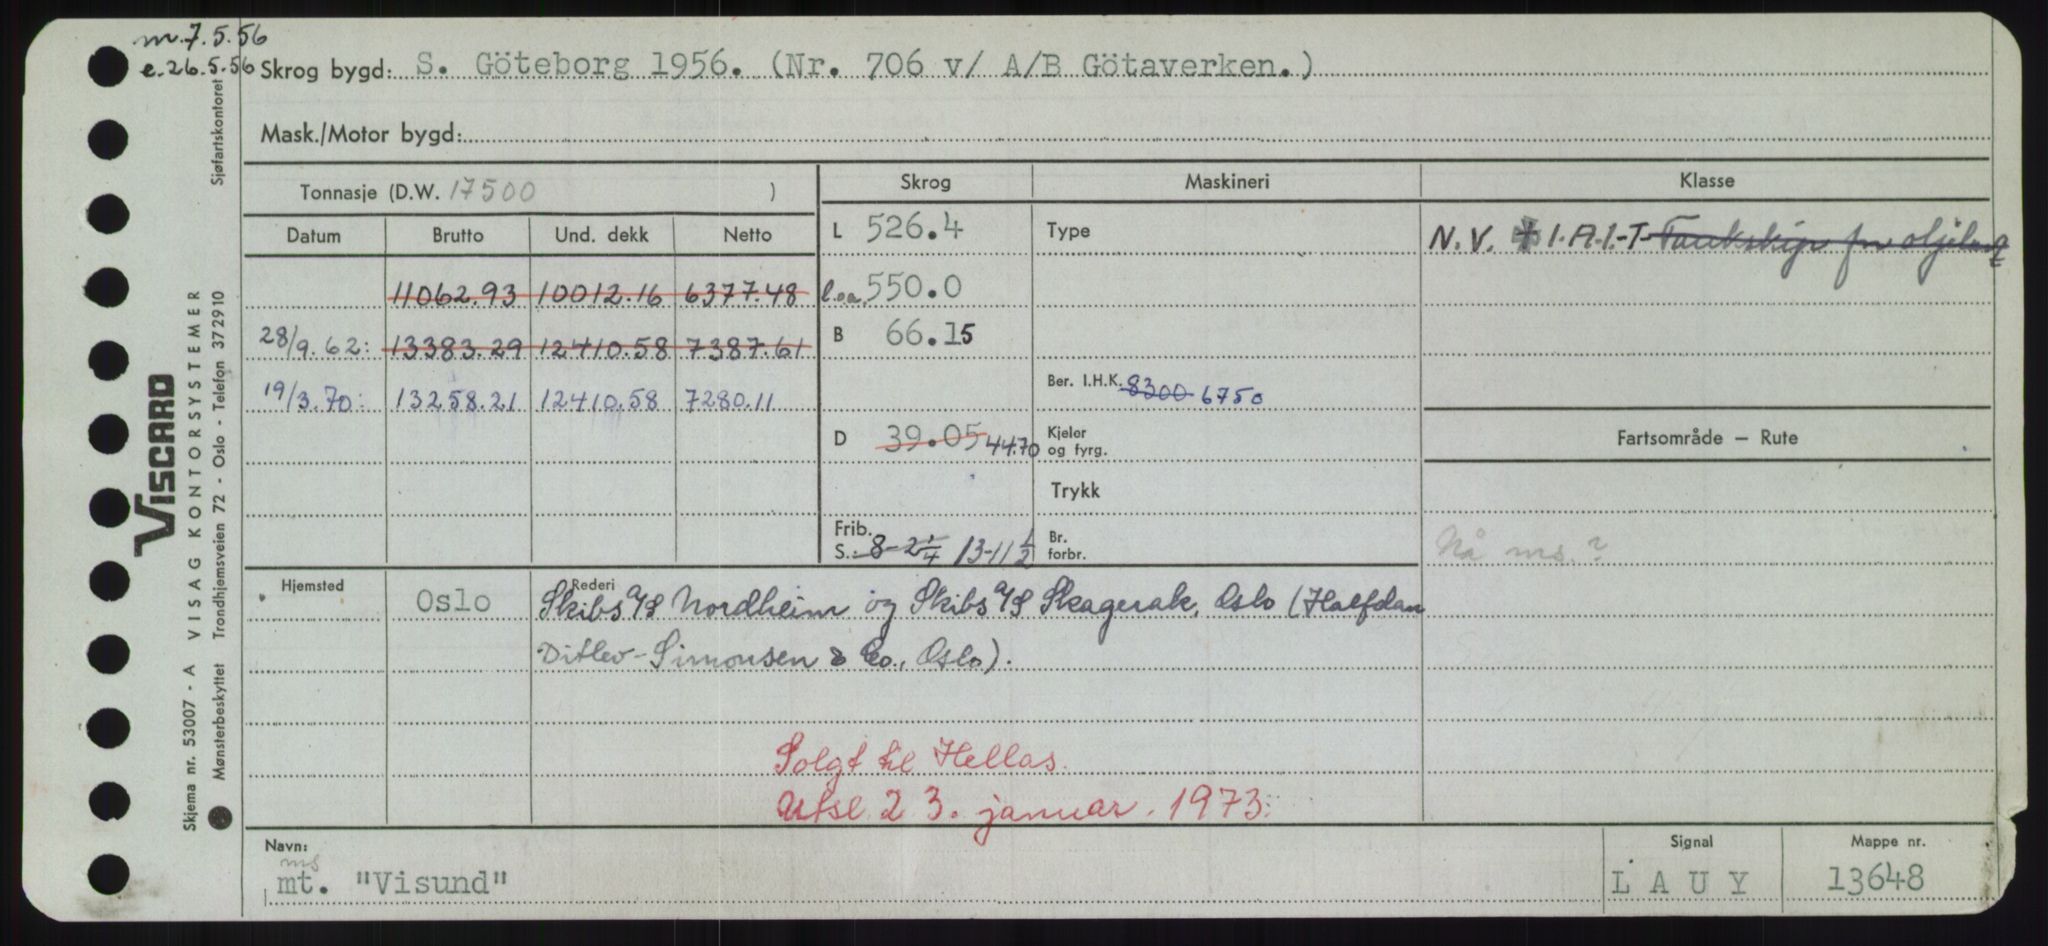 m. 7.5.56
e. 26.5.56
Skrog bygd: S. Göteborg 1956. (Nr. 706 v/ A/B Götaverken.)
Mask./Motor bygd:
Tonnasje (D.W. 17500 )
Skrog Maskineri Klasse
Datum Brutto Und. dekk Netto
L 526.4 Type N.V. ✠ 1.A.1.-T- Tankskip for oljelast
11062.93 10012.16 6377.48 l.o.a. 550.0
28/9.62: 13383.29 12410.58 7387.61 B 66.15
19/3.70: 13258.21 12410.58 7280.11 Ber. I.H.K. 8300 6750
D 39.05 44.70 Kjeler og fyrg. Fartsområde – Rute
Trykk
Frib. S.: 8-2 1/4 13-11 1/2 Br. forbr. Nå ms.?
Hjemsted Oslo Rederi Skibs A/S Nordheim og Skibs A/S Skagerak, Oslo (Halfdan
Ditlev-Simonsen & Co., Oslo).
Solgt til Hellas.
Utsl. 23. januar. 1973.
Navn: Signal Mappe nr.
ms
mt. "Visund" L A U Y 13648
Sjøfartskontoret
VISCARD
VISAG KONTORSYSTEMER
Skjema nr. 53007 - A
Mønsterbeskyttet Trondhjemsveien 72 - Oslo - Telefon 372910